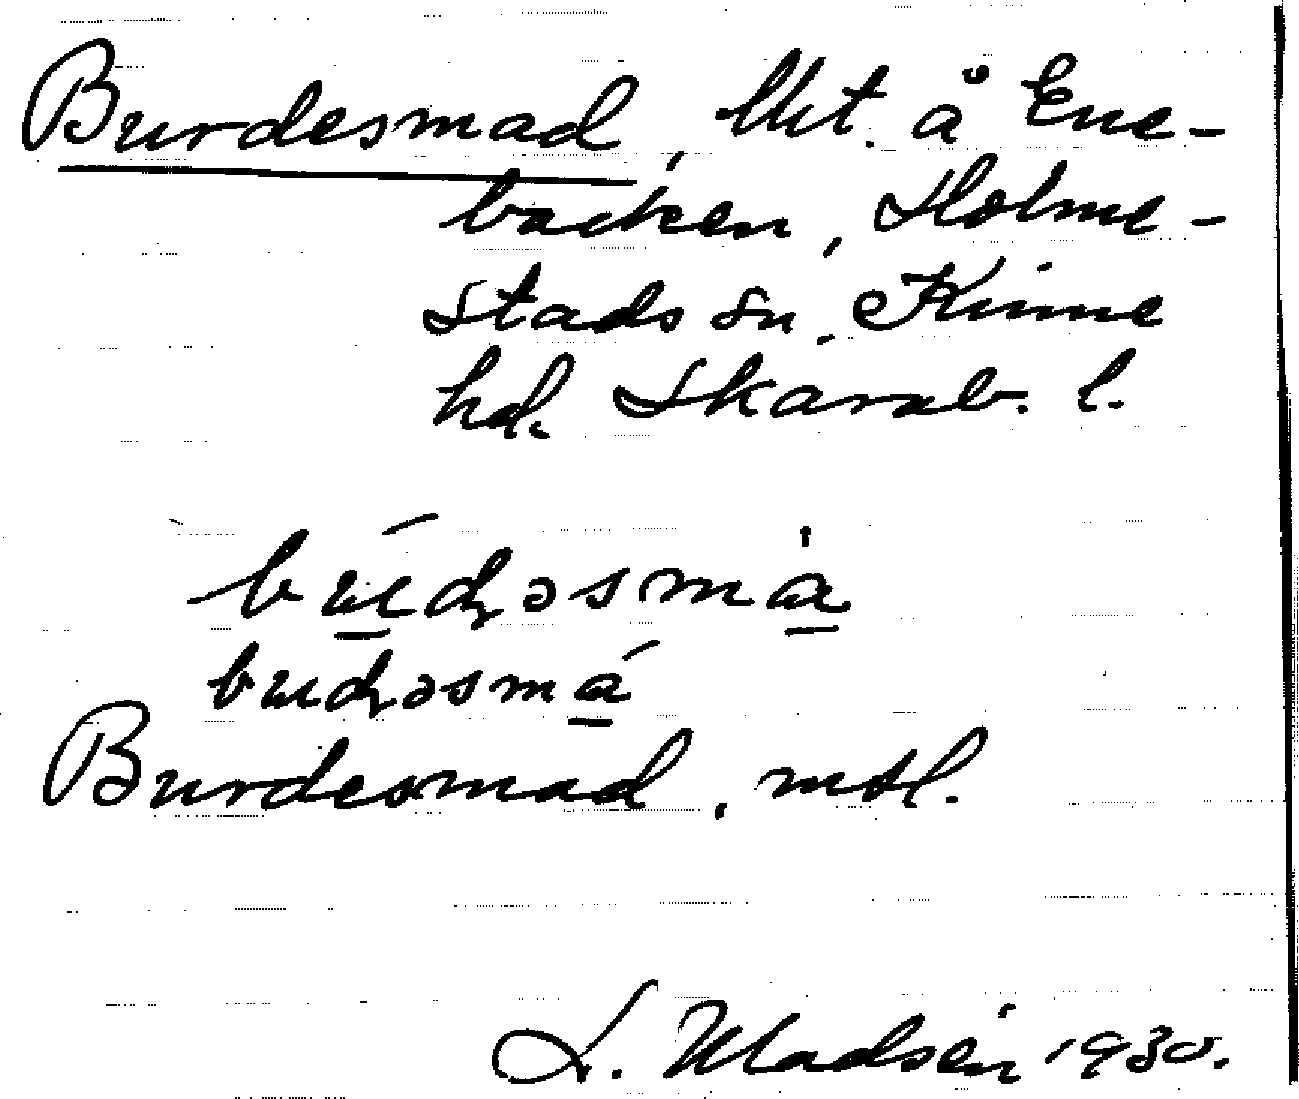 Burdesmad, Utt. å Ene-
backen, Holme-
stads sn, Kinne
hd. Skarab. l.
Burdesmad, msl.
L. Madsén 1930.